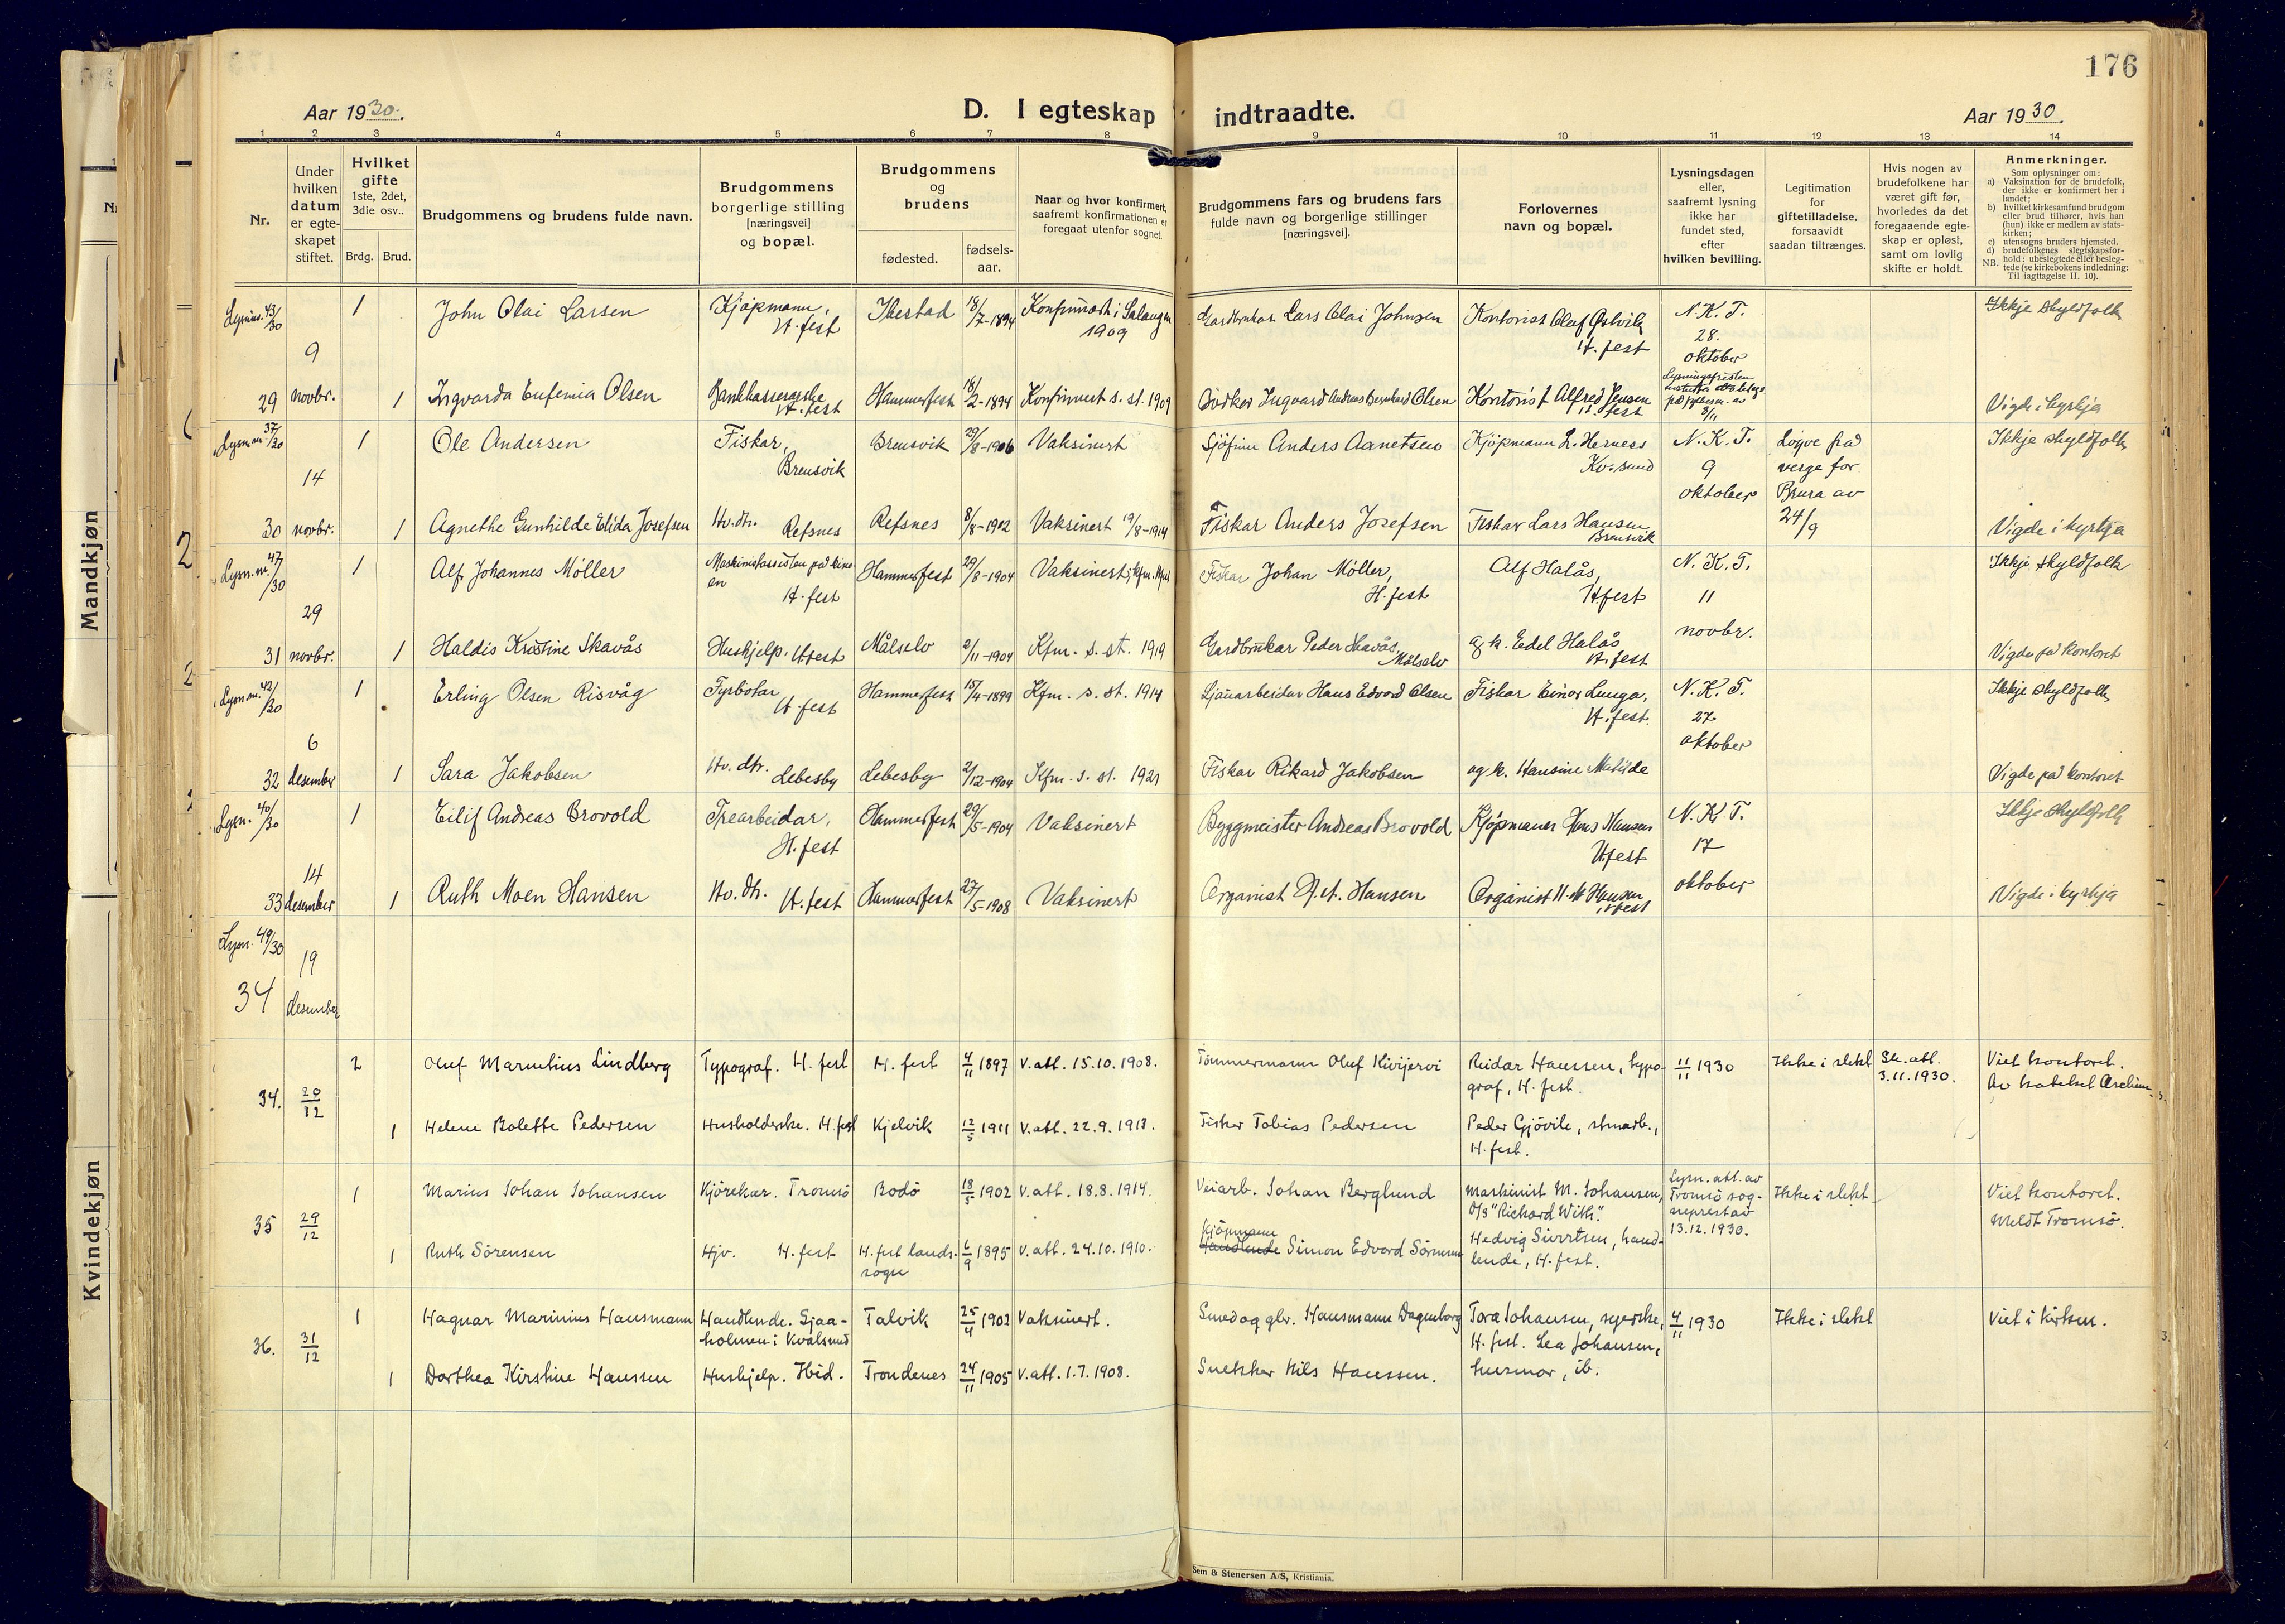 176
Aar 1930.
D. I egteskap indtraadte.
Aar 1930.
1 2 3 4 5 6 7 8 9 10 11 12 13 14
Nr.
Under hvilken datum er egteskapet stiftet.
Hvilket gifte 1ste, 2det, 3die osv..
Brdg. Brud.
Brudgommens og brudens fulde navn.
Brudgommens borgerlige stilling [næringsvei] og bopæl.
Brudgommens og brudens
fødested.
fødsels-aar.
Naar og hvor konfirmert, saafremt konfirmationen er foregaat utenfor sognet.
Brudgommens fars og brudens fars fulde navn og borgerlige stillinger [næringsvei].
Forlovernes navn og bopæl.
Lysningsdagen eller, saafremt lysning ikke har fundet sted, efter hvilken bevilling.
Legitimation for giftetilladelse, forsaavidt saadan tiltrænges.
Hvis nogen av brudefolkene har været gift før, hvorledes da det foregaaende egteskap er opløst, samt om lovlig skifte er holdt.
Anmerkninger.
Som oplysninger om:
a) Vaksination for de brudefolk, der ikke er konfirmert her i landet;
b) hvilket kirkesamfund brudgom eller brud tilhører, hvis han (hun) ikke er medlem av statskirken;
c) utensogns bruders hjemsted.
d) brudefolkenes slegtskapsforhold: ubeslegtede eller beslegtede (se kirkebokens indledning:
NB. Til iagttagelse II, 10).
Mandkjøn
Kvindekjøn
43/30 1 John Olai Larsen Kjøpmann, H.fest Ibestad 18/7-1894 i Salangen 1909 Lars Olai Johnsen Kontorist Olaf Østvik H.fest N.K.T. 28. oktober Ikkje skyldfolk
29 9 novbr. 1 Ingvarda Eufemia Olsen H.fest Hammerfest 18/2-1894 Konfirmert s. st. 1909 Bödker Ingvard Andreas Bernhard Olsen Kontorist Alfred Jensen H.fest 8/11 Vigde i kyrkja
Lysn nr. 37/30 1 Ole Andersen Fiskar, Breusvik Breusvik 29/8-1906 Vaksinert Sjöfinn Anders Aanetsen Kjøpmann L. Herness Kv.sund N.K.T. 9 oktober Løgve frå verge for Brura av 24/9 Ikkje skyldfolk
30 14 novbr. 1 Agnethe Gunhilde Elida Josefsen Hv.dtr. Refsnes Refsnes 8/8-1902 Vaksinert 19/8-1914 Fiskar Anders Josefsen Fiskar Lars Hansen, Breusvik Vigde i kyrkja
Lysn.nr. 47/30 1 Alf Johannes Møller H.fest Hammerfest 29/8-1904 Vaksinert Fiskar Johan Møller, H.fest Alf Halås, H.fest N.K.T. 11 novbr. Ikkje skyldfolk
31 29 novbr. 1 Haldis Kristine Skavås Hushjelp, H.fest Målselv 2/11-1904 Kfm. s. st. 1919 Gardbrukar Peder Skavås, Målselv og k. Edel Halås H.fest Vigde på kontoret
Lysn.nr. 42/30 1 Erling Olsen Risvåg Fyrbötar H.fest Hammerfest 15/4-1899 Kfm. s. st. 1914 Sjauarbeidar Hans Edvard Olsen Fiskar Einar Lunga, H.fest. N.K.T. 27 oktober Ikkje skyldfolk
32 6 desember 1 Sara Jakobsen Hv. dtr. Lebesby Lebesby 2/12-1904 Kfm. s. st. 1921 Fiskar Rikard Jakobsen og k. Hansine Matilde Vigde på kontoret
Lysn. 40/30 1 Eilif Andreas Brovold Trearbeidar, H.fest Hammerfest 29/5-1904 Vaksinert Byggmeister Andreas Brovold Kjøpmann Hans Hansen H.fest N.K.T. 17 oktober Ikkje skyldfolk
33 14 desember 1 Ruth Moen Hansen Hv. dtr. H.fest Hammerfest 27/5-1908 Vaksinert Organist Hansen Organist Hansen H.fest Vigde i kyrkja
Lysn. 49/30
34 19 desember
34. 20/12 2 Oluf Marnelius Lindberg Typograf. H.fest H. fest 4/11 1897 V.att. 15.10.1908. Tömmermann Oluf Kivijervi Reidar Hanssen, typograf, H. fest. 11/11 1930 Ikke i slekt Sk.att. 3.11.1930. Viet kontoret. Av
1 Helene Bolette Pedersen Husholderske. H.fest Kjelvik 12/5 1911 V.att. 22.9.1913. Fisker Tobias Pedersen Peder Gjövik, H. fest.
35 29/12 1 Marius Johan Johansen Kjörekar. Tromsö Bodö 18/5 1902 V.att. 18.8.1914. Veiarb. Johan Berglund Maskinist M. Johansen, D/S "Rickard With". Lysn. att. av Tromsö sogneprest av 13.12.1930. Ikke i slekt Viet kontoret. Meldt Tromsö.
1 Ruth Sörensen Hjv. H. fest H.fest landssogn 6/9 1895 V.att. 24.10.1910. Kjöpmann Handlende Simon Edvard Sörensen Hedvig Sivertsen, handlende, H. fest.
36. 31/12 1 Hagnar Marinius Hansmann Handlende. Sjaaholmen i Kvalsund Talvik 25/4 1902 Vaksinert. Smed og gbr. Hansmann Dagenborg Tora Johansen, syerske, H. fest. Lea Johansen, husmor, ib. 4/11 1930 Ikke i slekt Viet i kirken.
1 Dorthea Kirstine Hanssen Hushjelp. Ibid. Trondenes 24/11 1905 V.att. 1.7.1908. Snekker Nils Hanssen.
Sem & Stenersen A/S, Kristiania.